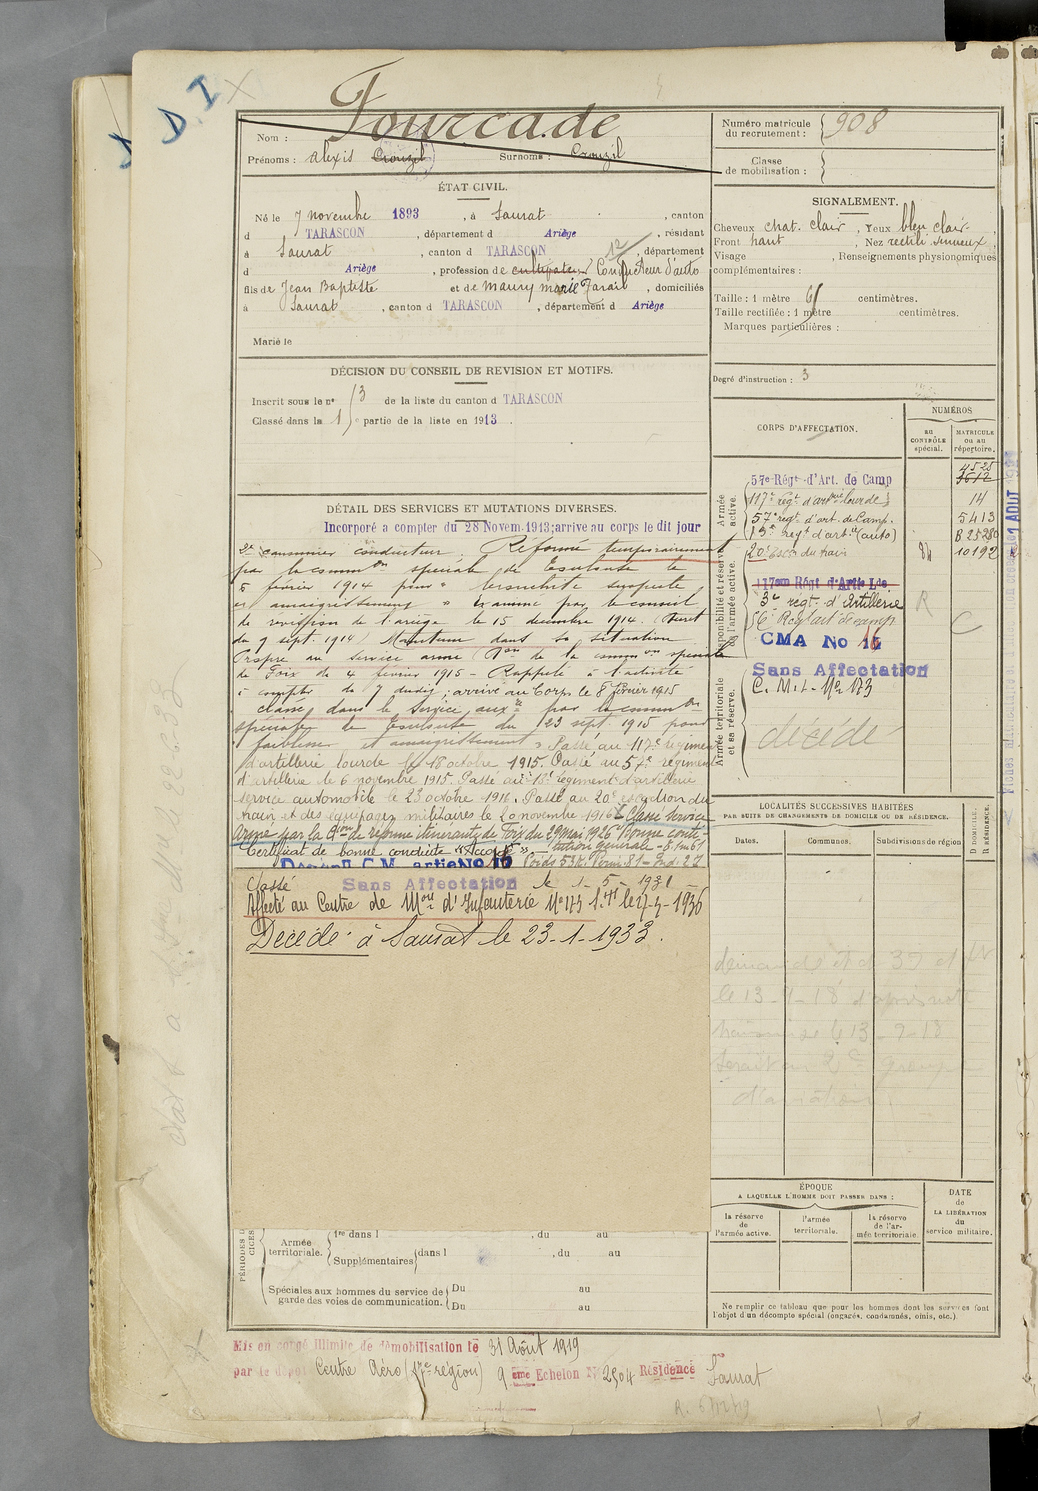 D. I
Fourcade
Nom :
Prénoms : Alexis Crouzil Surnoms : Crouzil
ÉTAT CIVIL.
Né le 7 novembre 1893, à Saurat, canton
d TARASCON, département d Ariège, résidant
à Saurat, canton d TARASCON, département
d Ariège, profession de cultivateur Conducteur d'auto
fils de Jean Baptiste et de Maury Marie, domiciliés
à Saurat, canton d TARASCON, département d Ariège
Marié le
DÉCISION DU CONSEIL DE REVISION ET MOTIFS.
Inscrit sous le n° 3 de la liste du canton d TARASCON
Classé dans la 1 partie de la liste en 1913.
DÉTAIL DES SERVICES ET MUTATIONS DIVERSES.
Incorporé a compter du 28 Novem. 1913; arrive au corps le dit jour
2e canonnier conducteur. Réformé temporairement
par la comm on spéciale de Toulouse le
5 février 1914 pour "bronchite suspecte
et amaigrissement" examiné par le conseil
de révision de l'ariège le 15 décembre 1914. (Décret
du 9 sept. 1914) Maintenu dans sa situation
Propre au service armé (Don de la comm on spéciale
de Foix du 4 février 1915 - Rappelé à l'activité
à compter du 7 dudit; arrivé au Corps le 8 février 1915
classé dans le service auxre par la comm on
spéciale de Toulouse du 23 sept. 1915 pour
faiblesse et amaigrissement". Passé au 117e régiment
d'artillerie lourde le 18 octobre 1915. Passé au 57e régiment
d'artillerie le 6 novembre 1915. Passé au 13e régiment d'artillerie
service automobile le 23 octobre 1916. Passé au 20e escadron du
train et des équipages militaires le 20 novembre 1916. Classé service
armé par la Con de réforme itinérante de Foix du 29 Mai 1926 "Bonne consti-
tution générale - 1m61
Certificat de bonne conduite "Accordé"
Poids 53k Périm. 81 - Ind. 27
Classé Sans Affectation le 1-5-1931
Affecté au Centre de Mon d'Infanterie No 173
Décédé à Saurat le 23-1-1933.
1re dans l , du au
Armée territoriale.
Supplémentaires dans l , du au
Spéciales aux hommes du service de garde des voies de communication.
Du au
Du au
Mis en congé illimité de démobilisation le 31 Août 1919
par le dépôt Centre Aéro (17e région) 9 ème Echelon No 2504 Résidence Saurat
Numéro matricule du recrutement : 908
Classe de mobilisation :
SIGNALEMENT.
Cheveux chat. clair, Yeux bleu clair
Front haut, Nez rectili. sinueux
Visage , Renseignements physionomiques
complémentaires :
Taille : 1 mètre 61 centimètres.
Taille rectifiée : 1 mètre centimètres.
Marques particulières :
Degré d'instruction : 3
CORPS D'AFFECTATION.
NUMÉROS
au CONTRÔLE spécial.
MATRICULE ou au répertoire.
Armée active.
57e Régt d'Art. de Camp 4525 3612
117e régt d'artrie lourde 14
57e régt. d'art. de Camp. 5413
13e régt d'artie (auto) B 25280
Disponibilité et réserve de l'armée active.
20e Escon du train 84 10192
117em Régt d'Artie Lde
3e régt. d'Artillerie R
C
CMA No 16
Sans Affectation
C. M. I. No 173
Armée territoriale et sa réserve.
décédé
LOCALITÉS SUCCESSIVES HABITÉES
PAR SUITE DE CHANGEMENTS DE DOMICILE OU DE RÉSIDENCE.
Dates. Communes. Subdivisions de région D DOMICILE. R RÉSIDENCE.
ÉPOQUE
A LAQUELLE L'HOMME DOIT PASSER DANS :
la réserve de l'armée active.
l'armée territoriale.
la réserve de l'armée territoriale.
DATE DE LA LIBÉRATION du service militaire.
Ne remplir ce tableau que pour les hommes dont les services font
l'objet d'un décompte spécial (engagés, condamnés, omis, etc.).